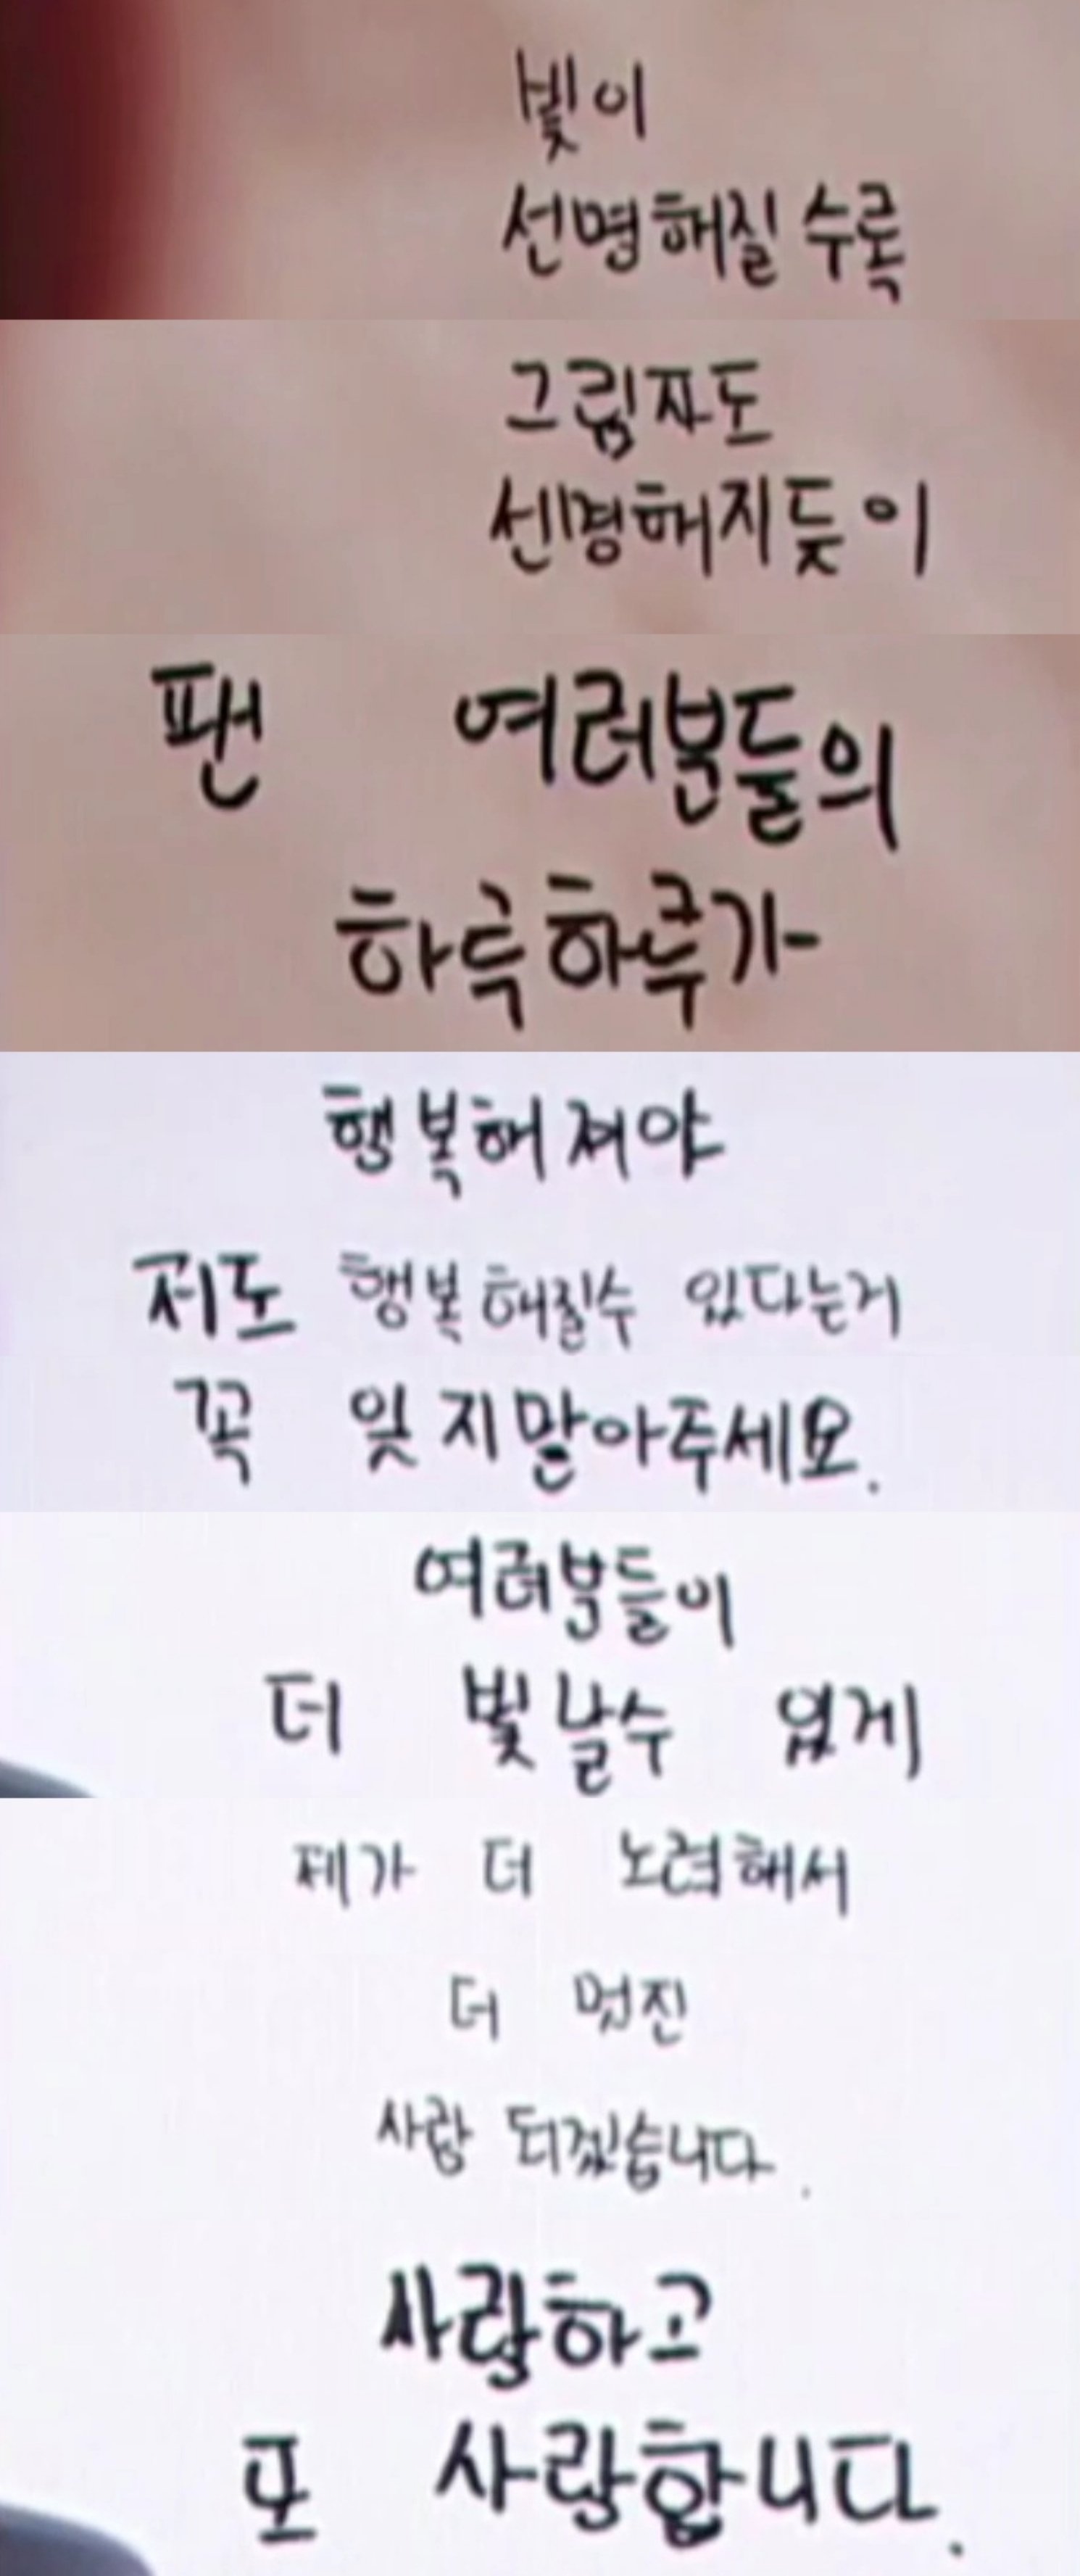 빛이
선명해질 수록
그림자도
선명해지듯이
팬 여러분들의
하루하루가
행복해져야
저도 행복해질수 있다는거
꼭 잊지말아주세요.
여러분들이
더 빛날수 있게
제가 더 노력해서
더 멋진
사람 되겠습니다.
사랑하고
또 사랑합니다.